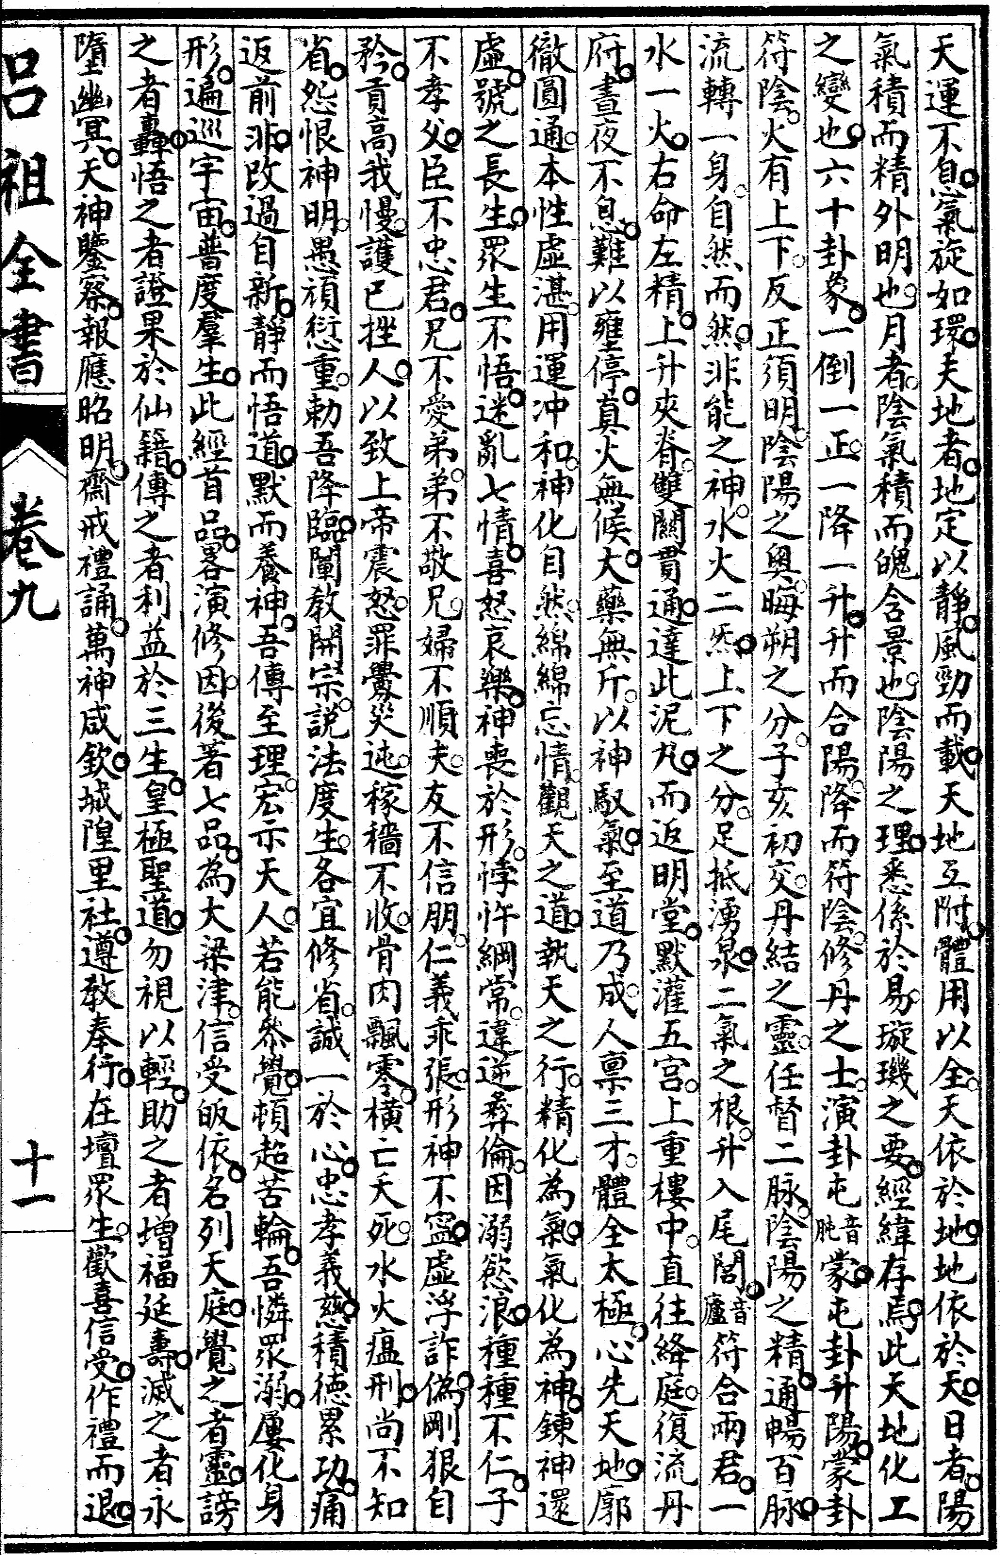 天運不息氣旋如環夫地者地定以靜風勁而載天地互附體用以全天依於地地依於天日者陽
氣積而精外明也月者陰氣積而魄含景也陰陽之理悉係於易璇璣之要經緯存焉此天地化工
之變也六十卦象一倒一正一降一升升而合陽降而符陰修丹之士演卦屯音肫蒙屯卦升陽蒙卦
符陰火有上下反正須明陰陽之奧晦朔之分子亥初交丹結之靈任督二脉陰陽之精通暢百脉
流轉一身自然而然非能之神水火二炁上下之分足抵湧泉二氣之根升入尾閭音廬符合兩君一
水一火右命左精上升夾脊雙關貫通達此泥丸而返明堂默灌五宮上重樓中直往絳庭復流丹
府晝夜不息難以壅停真火無候大藥無斤以神馭氣至道乃成人禀三才體全太極心先天地廓
徹圓通本性虛湛用運冲和神化自然綿綿忘情觀天之道執天之行精化為氣氣化為神鍊神還
虛號之長生眾生不悟迷亂七情喜怒哀樂神喪於形悖忤綱常違逆彞倫因溺慾浪種種不仁子
不孝父臣不忠君兄不愛弟弟不敬兄婦不順夫友不信朋仁義乖張形神不寍虛浮詐偽剛狠自
矜貢高我慢護已挫人以致上帝震怒罪釁災迍稼穡不收骨肉飄零橫亡夭死水火瘟刑尚不知
省怨恨神明愚頑愆重勅吾降臨闡教開宗說法度生各宜修省誠一於心忠孝義慈積德累功痛
返前非改過自新靜而悟道默而養神吾傳至理宏示天人若能叅覺頓超苦輪吾憐眾溺屢化身
形遍巡宇宙普度羣生此經首品畧演修因後著七品為大梁津信受皈依名列天庭覺之者靈謗
之者轟悟之者證果於仙籍傳之者利益於三生皇極聖道勿視以輕助之者增福延壽滅之者永
墮幽冥天神鑒察報應昭明齋戒禮誦萬神咸欽城隍里社遵教奉行在壇眾生歡喜信受作禮而退
呂祖全書
卷九
十一